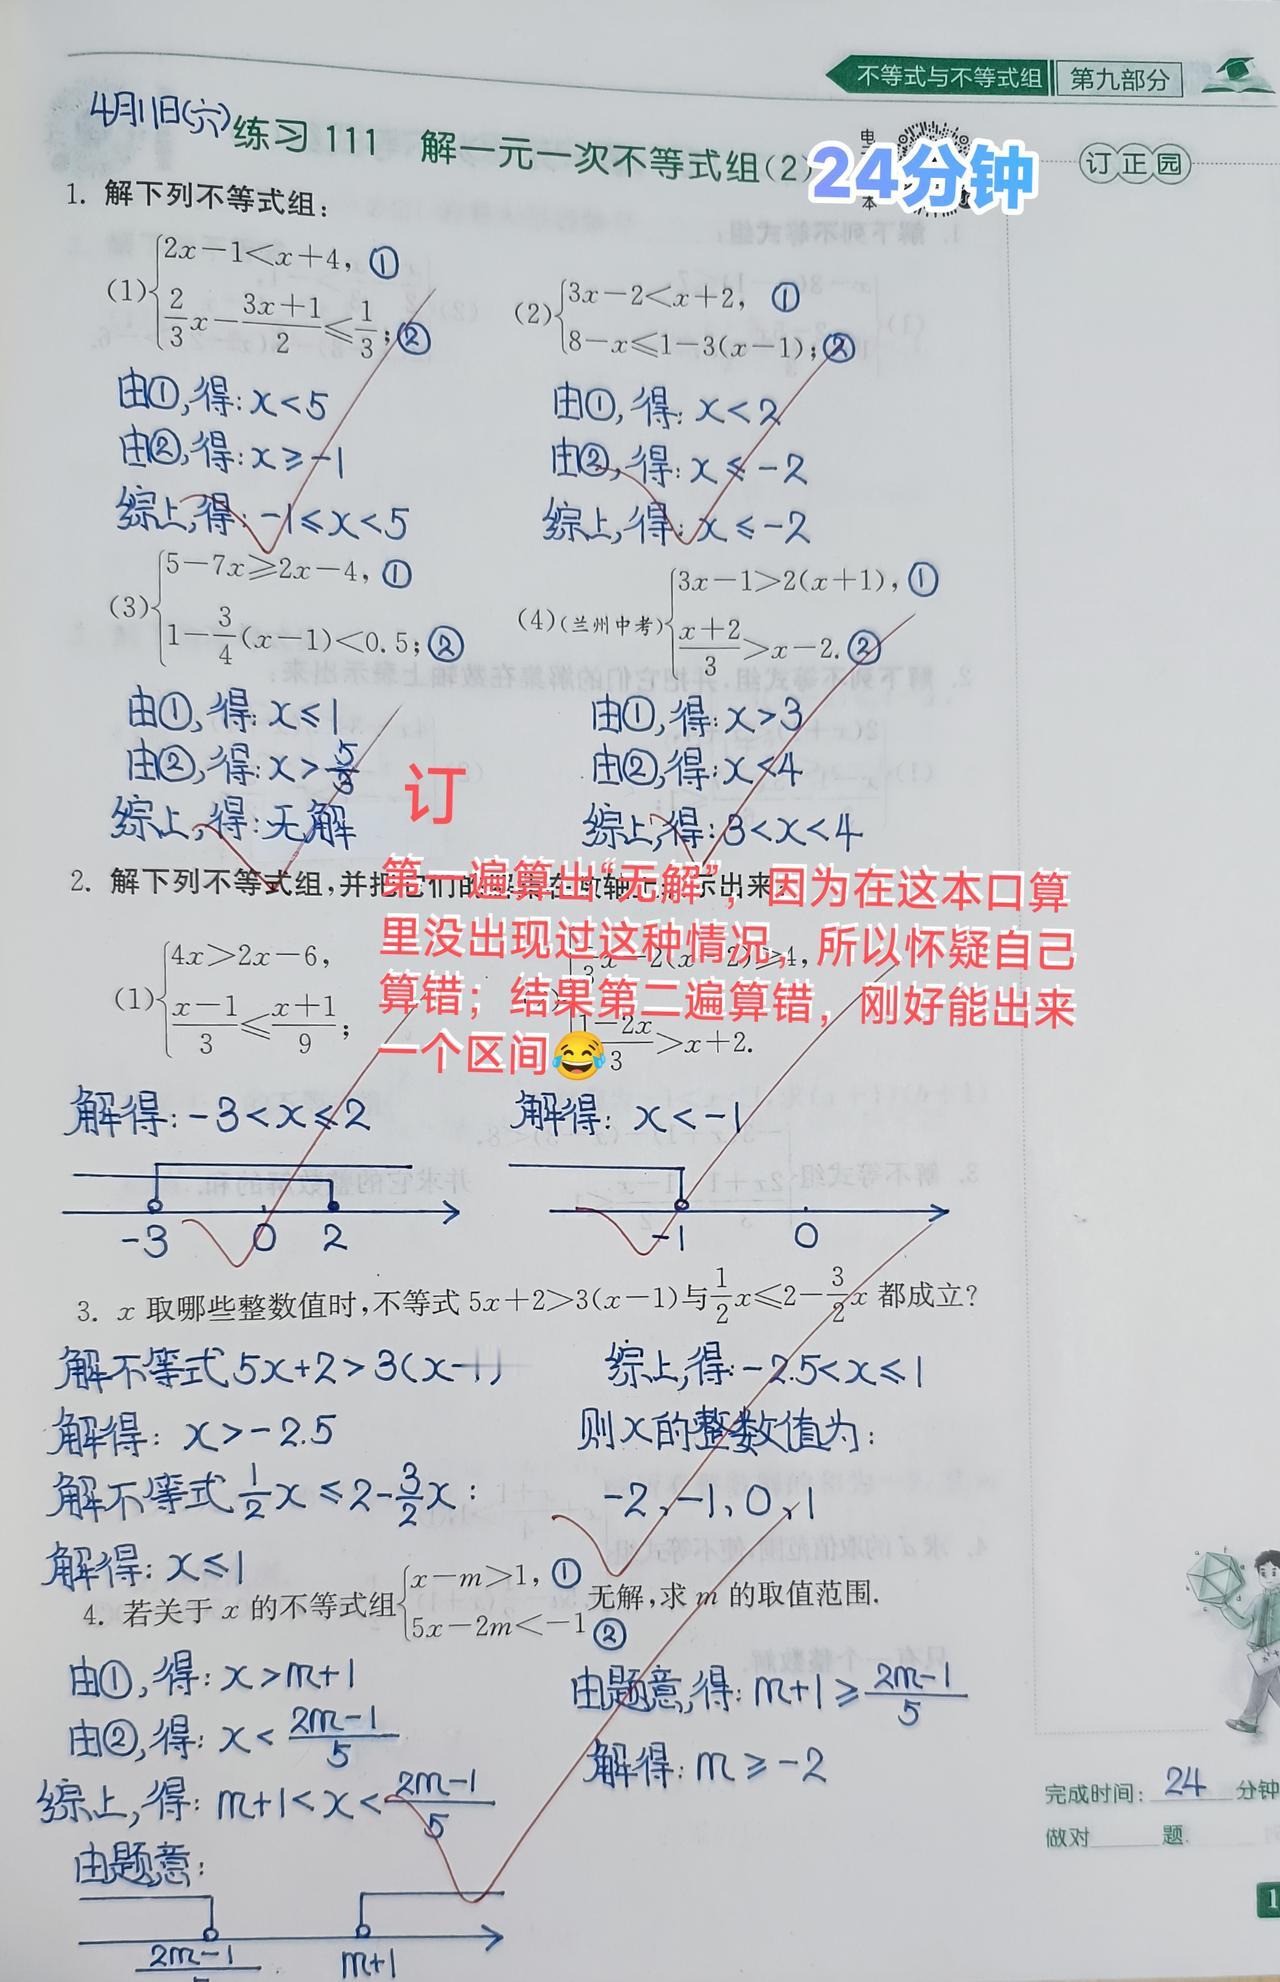 不等式与不等式组 第九部分
4月11日(六)
练习111 解一元一次不等式组(2)
24分钟
订正园
1. 解下列不等式组:
(1) 2x-1<x+4, ①
2/3 x-(3x+1)/2≤1/3; ②
由①,得: x<5
由②,得: x≥-1
综上,得: -1≤x<5
(2) 3x-2<x+2, ①
8-x≤1-3(x-1); ②
由①,得: x<2
由②,得: x≤-2
综上,得: x≤-2
(3) 5-7x≥2x-4, ①
1-3/4(x-1)<0.5; ②
由①,得: x≤1
由②,得: x>5/3
综上,得: 无解
(4)(兰州中考) 3x-1>2(x+1), ①
(x+2)/3>x-2. ②
由①,得: x>3
由②,得: x<4
综上,得: 3<x<4
订
第一遍算出“无解”，因为在这本口算
里没出现过这种情况，所以怀疑自己
算错；结果第二遍算错，刚好能出来
一个区间😂
2. 解下列不等式组,并把它们的解集在数轴上表示出来:
(1) 4x>2x-6,
(x-1)/3≤(x+1)/9;
解得: -3<x≤2
-3 0 2
x-2(x-2)≥4,
(1-2x)/3>x+2.
解得: x<-1
-1 0
3. x 取哪些整数值时,不等式 5x+2>3(x-1)与1/2 x≤2-3/2 x 都成立?
解不等式5x+2>3(x-1)
解得: x>-2.5
解不等式1/2 x≤2-3/2 x:
解得: x≤1
综上,得: -2.5<x≤1
则x的整数值为:
-2、-1、0、1
4. 若关于 x 的不等式组 x-m>1, ① 5x-2m<-1 ② 无解,求 m 的取值范围.
由①,得: x>m+1
由②,得: x<(2m-1)/5
综上,得: m+1<x<(2m-1)/5
由题意:
(2m-1)/5 m+1
由题意,得: m+1≥(2m-1)/5
解得: m≥-2
完成时间: 24 分钟
做对 题.
1